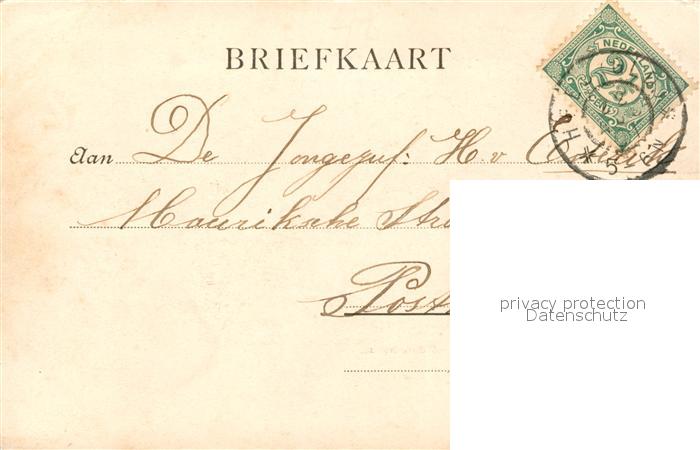 BRIEFKAART
NEDERLAND
2½
CENT
Aan De Jongejuf: H. v
Mauriksche Stra
Post
privacy protection
Datenschutz